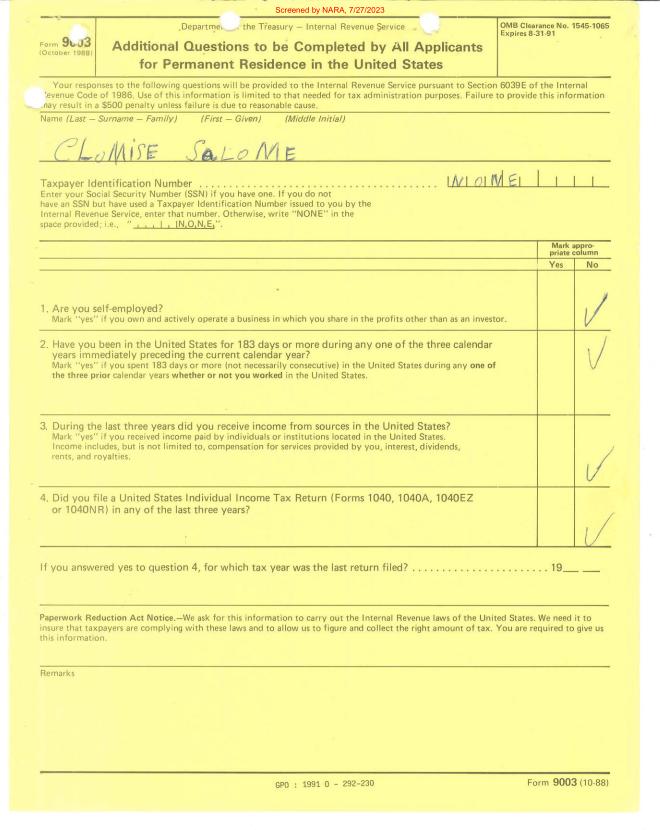 Screened by NARA, 7/27/2023
Department of the Treasury — Internal Revenue Service
OMB Clearance No. 1545-1065
Expires 8-31-91
Form 9003
(October 1988)
Additional Questions to be Completed by All Applicants
for Permanent Residence in the United States
Your responses to the following questions will be provided to the Internal Revenue Service pursuant to Section 6039E of the Internal
Revenue Code of 1986. Use of this information is limited to that needed for tax administration purposes. Failure to provide this information
may result in a $500 penalty unless failure is due to reasonable cause.
Name (Last — Surname — Family) (First — Given) (Middle Initial)
CLOMISE SALOME
Taxpayer Identification Number NONE
Enter your Social Security Number (SSN) if you have one. If you do not
have an SSN but have used a Taxpayer Identification Number issued to you by the
Internal Revenue Service, enter that number. Otherwise, write "NONE" in the
space provided; i.e., " , , , | , |N,O,N,E,".
Mark appro-
priate column
Yes No
1. Are you self-employed?
Mark "yes" if you own and actively operate a business in which you share in the profits other than as an investor.
✓
2. Have you been in the United States for 183 days or more during any one of the three calendar
years immediately preceding the current calendar year?
✓
Mark "yes" if you spent 183 days or more (not necessarily consecutive) in the United States during any one of
the three prior calendar years whether or not you worked in the United States.
3. During the last three years did you receive income from sources in the United States?
Mark "yes" if you received income paid by individuals or institutions located in the United States.
Income includes, but is not limited to, compensation for services provided by you, interest, dividends,
rents, and royalties.
✓
4. Did you file a United States Individual Income Tax Return (Forms 1040, 1040A, 1040EZ
or 1040NR) in any of the last three years?
✓
If you answered yes to question 4, for which tax year was the last return filed? ........................ 19__ __
Paperwork Reduction Act Notice.—We ask for this information to carry out the Internal Revenue laws of the United States. We need it to
insure that taxpayers are complying with these laws and to allow us to figure and collect the right amount of tax. You are required to give us
this information.
Remarks
GPO : 1991 O - 292-230
Form 9003 (10-88)